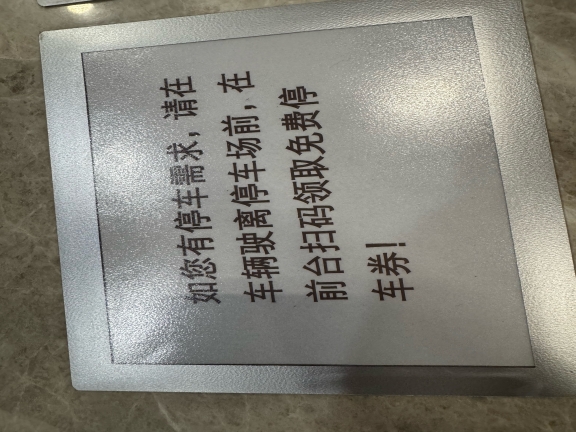 如您有停车需求，请在
车辆驶离停车场前，在
前台扫码领取免费停
车券！